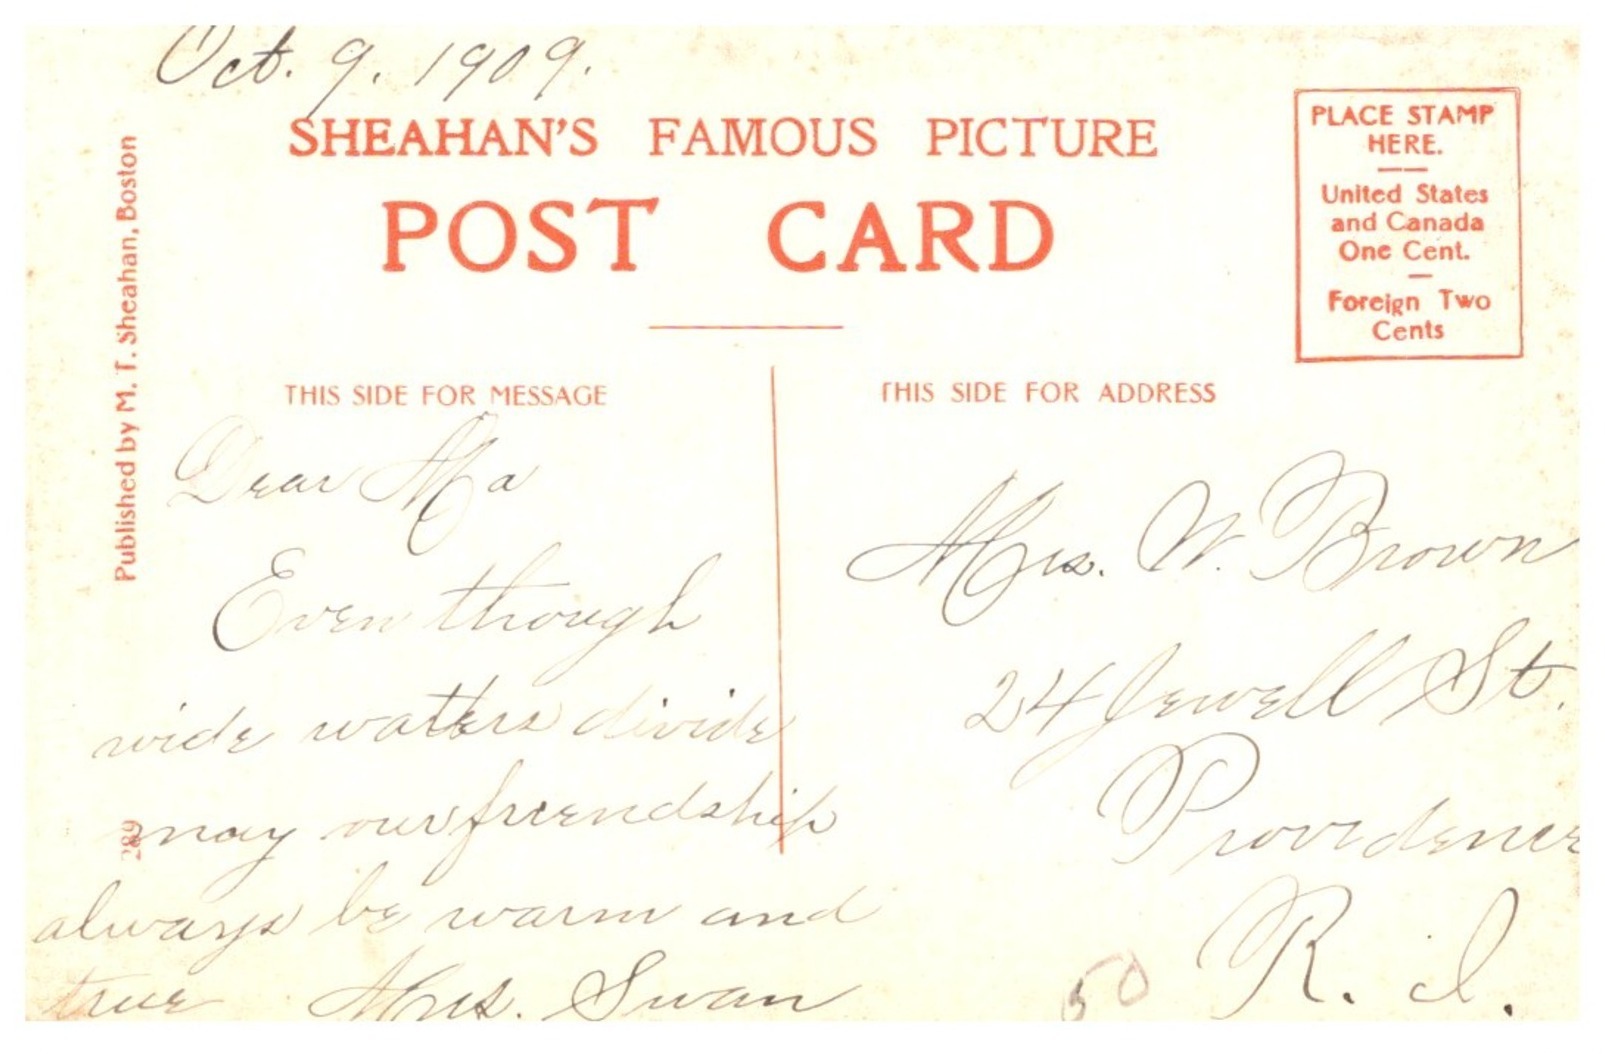 Oct. 9. 1909.
SHEAHAN'S FAMOUS PICTURE
POST CARD
PLACE STAMP
HERE.
United States
and Canada
One Cent.
Foreign Two
Cents
Published by M. T. Sheahan, Boston
289
THIS SIDE FOR MESSAGE
Dear Ma
Even though
wide waters divide
may our friendship
always be warm and
true Mrs. Swan
THIS SIDE FOR ADDRESS
Mrs. W. Brown
24 Jewell St.
Providence
R. I.
50